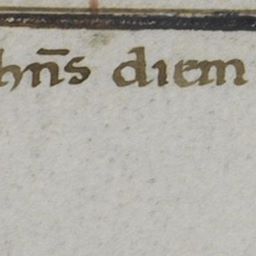 hn̄s diem